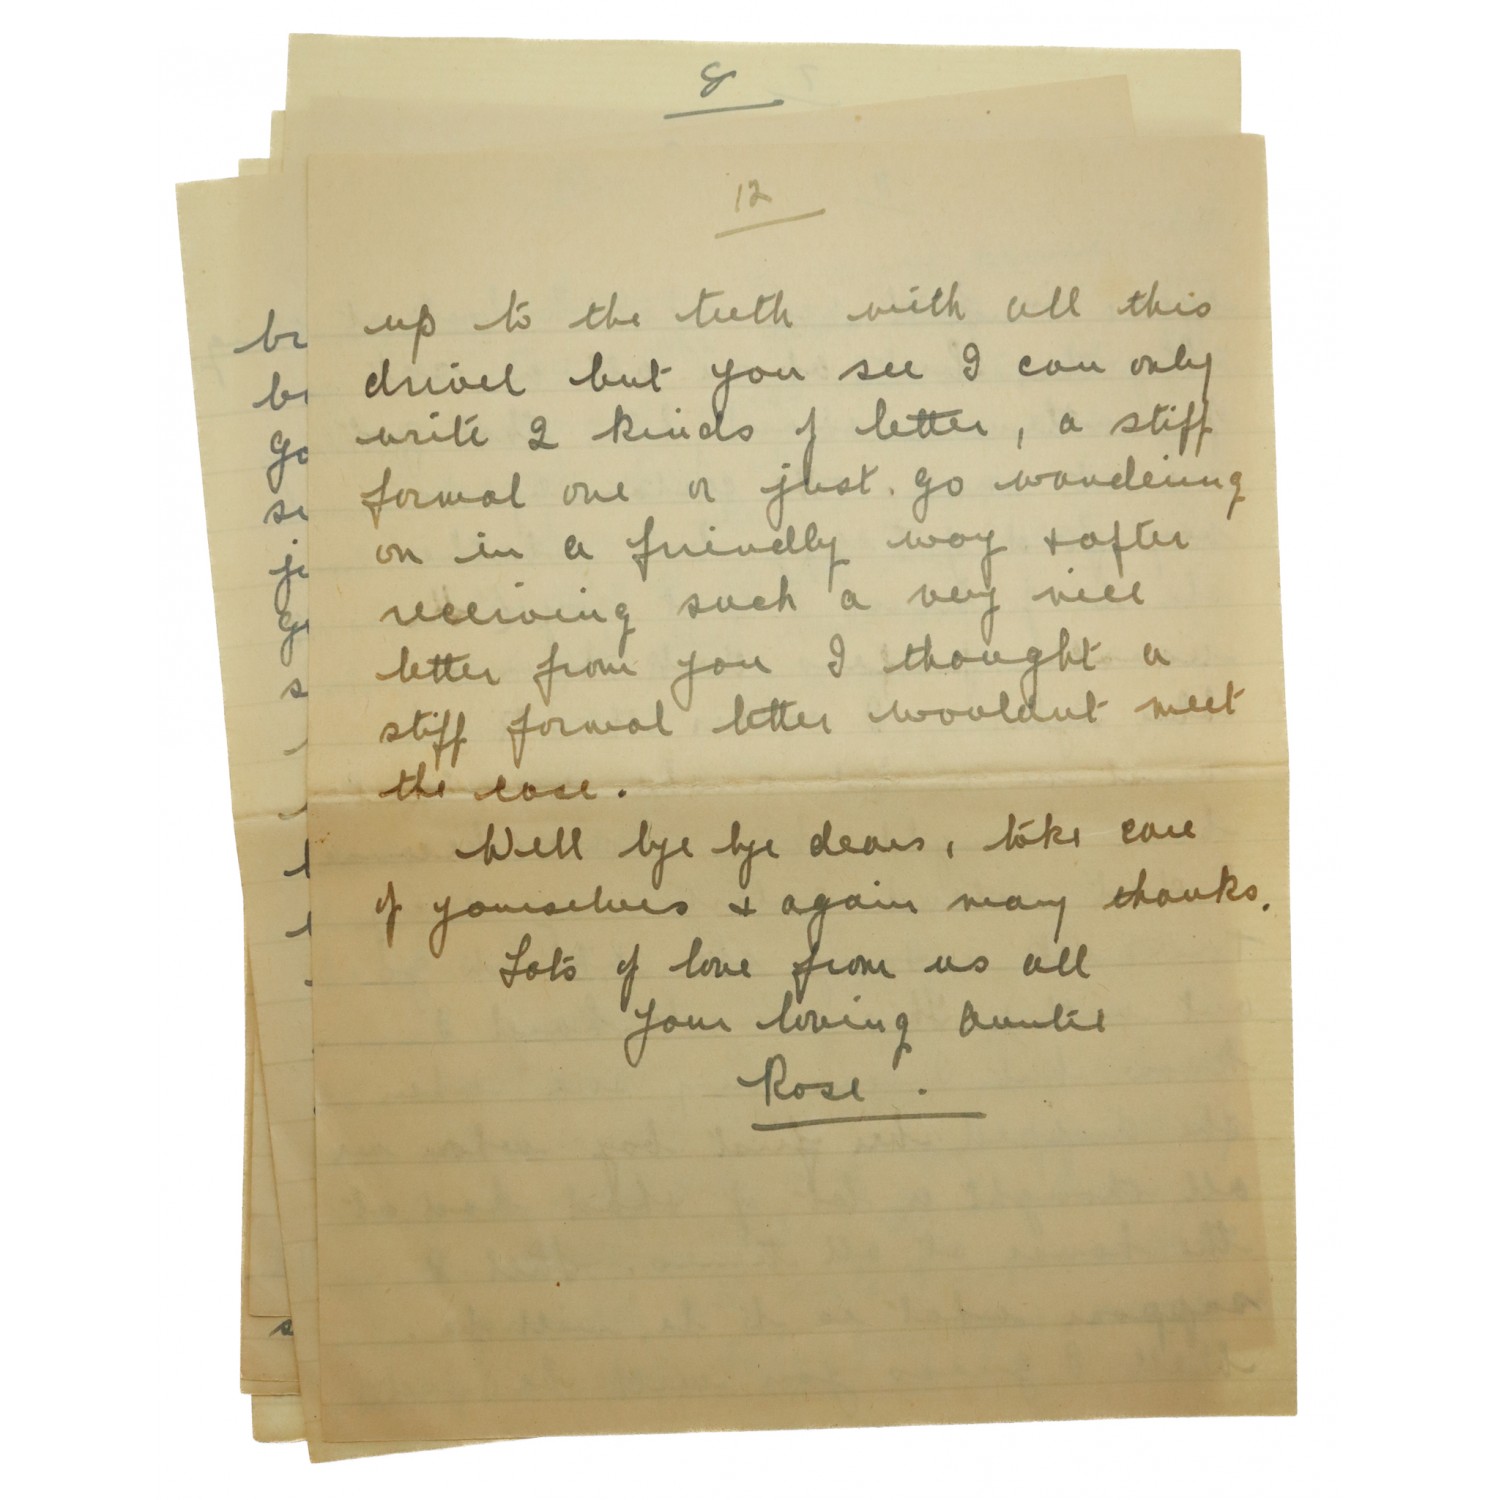 8
12
up to the teeth with all this
drivel but you see I can only
write 2 kinds of letter, a stiff
formal one or just. go wandering
on in a friendly way & after
receiving such a very nice
letter from you I thought a
stiff formal letter wouldnt meet
the case.
Well bye bye dears, take care
of yourselves & again many thanks.
Lots of love from us all
Your loving Auntie
Rose.